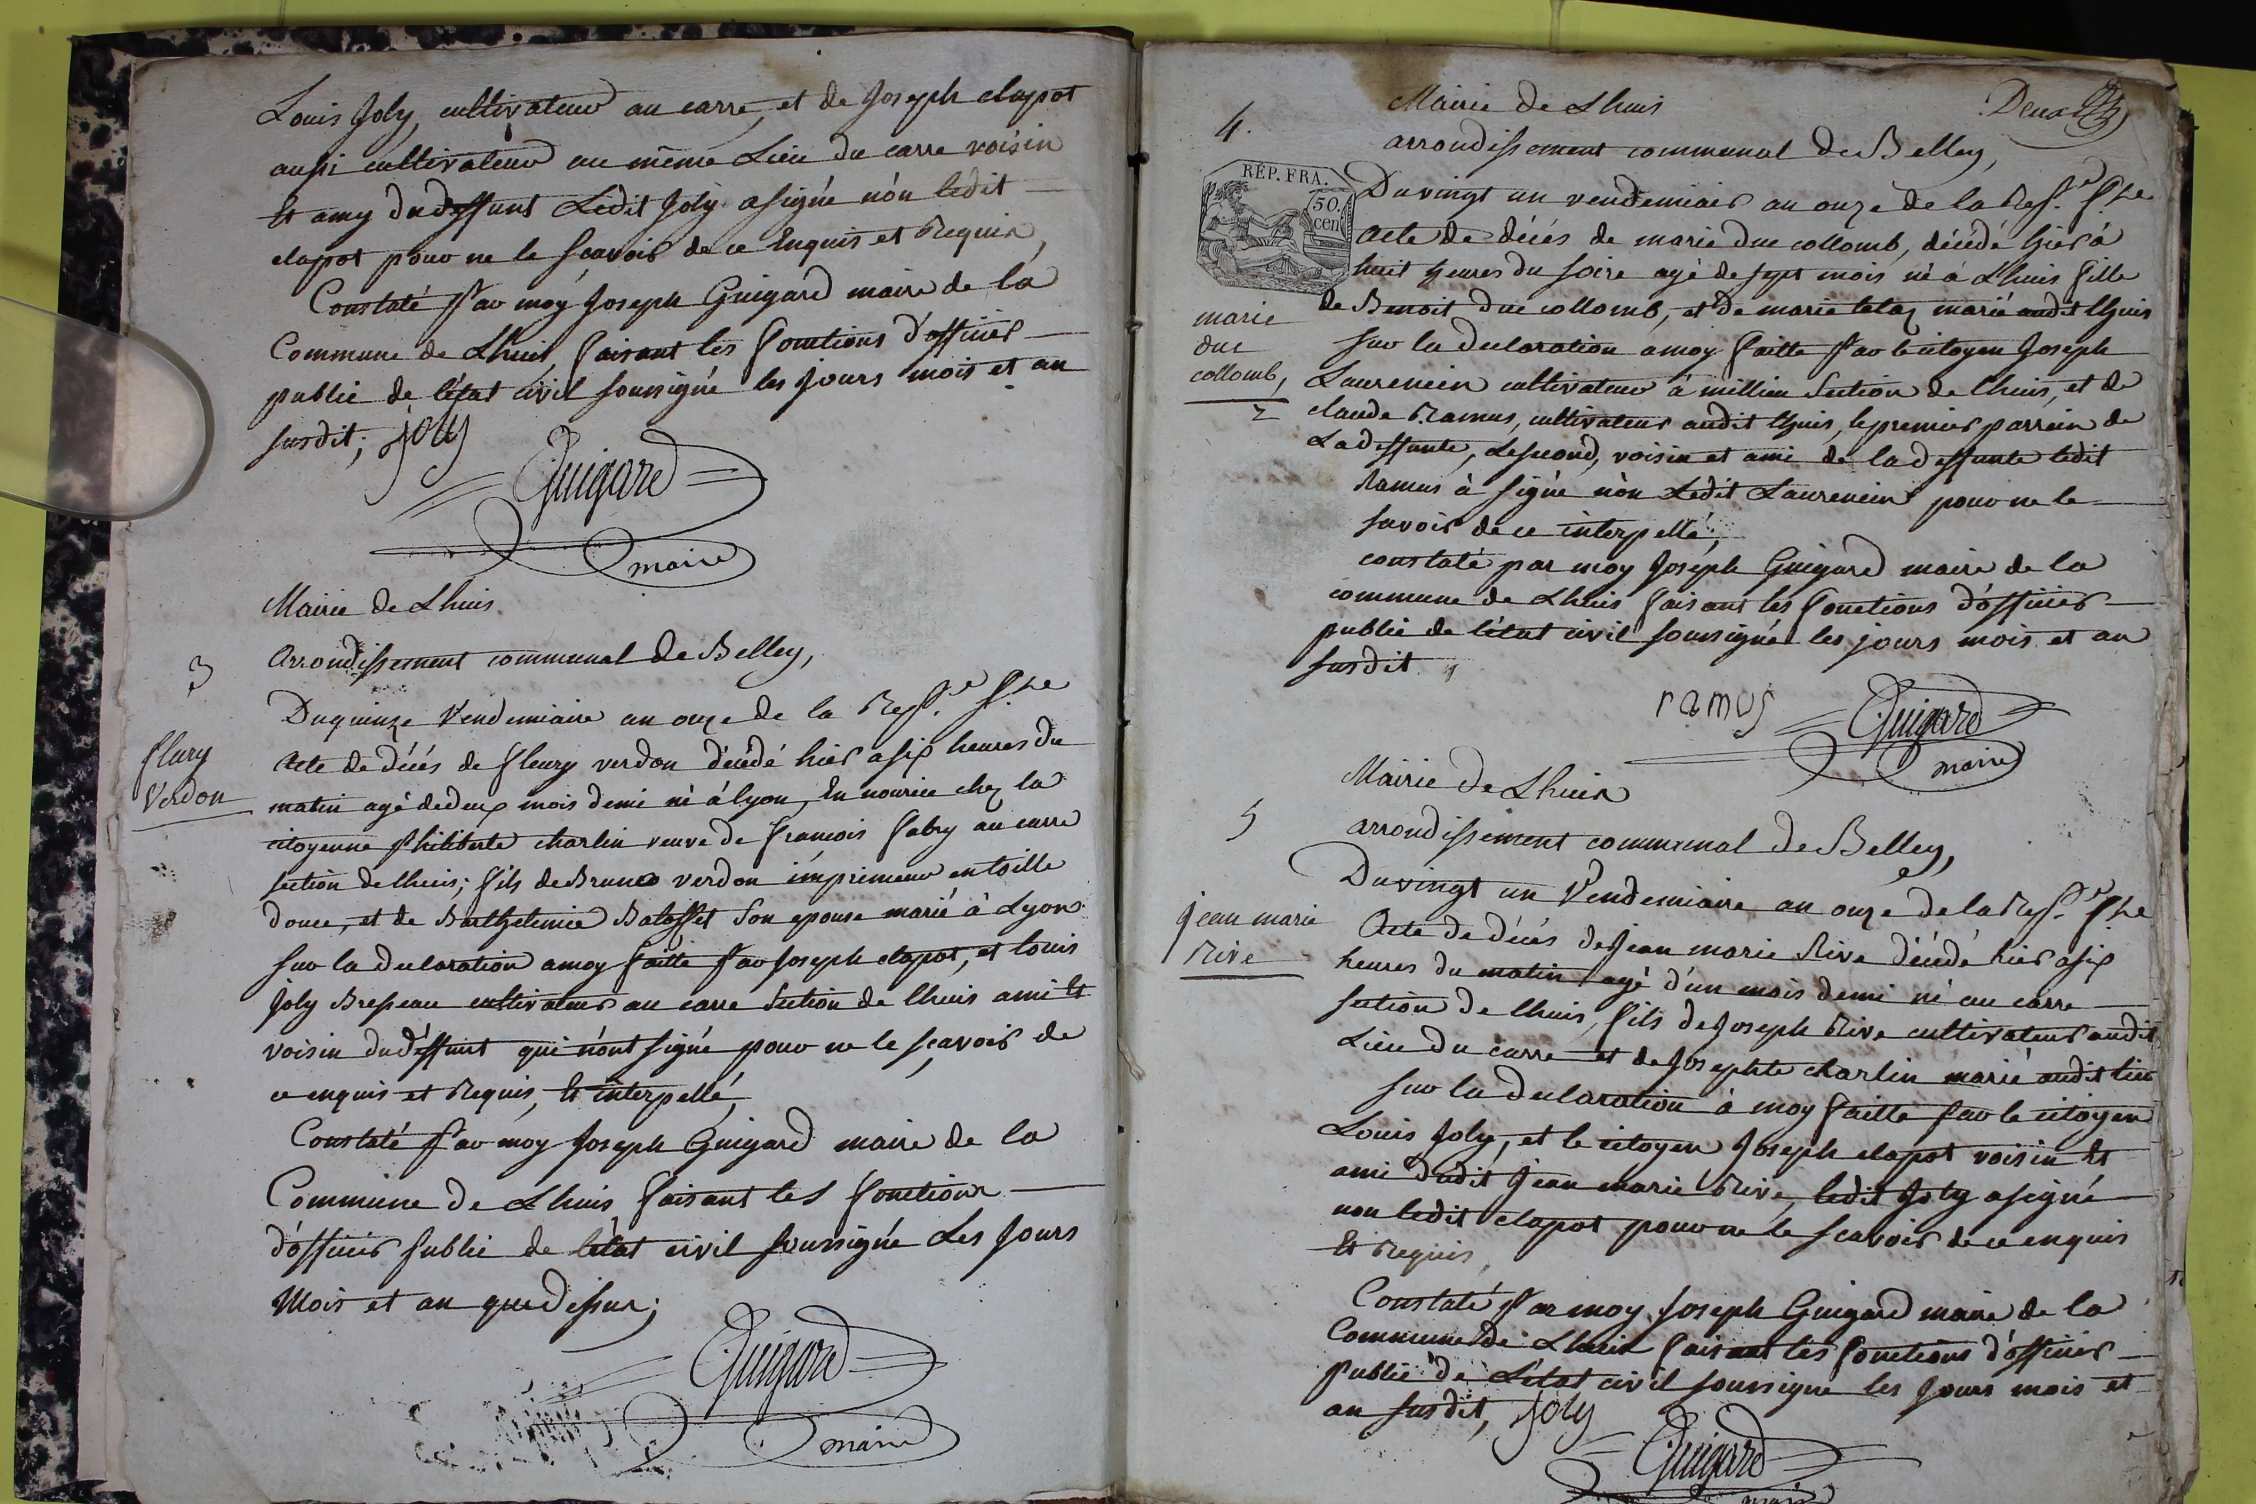 Louis Joly, cultivateur au carre, et de Joseph clapot
aussi cultivateur au même Lieu du carre voisin
Et amy du deffunt Ledit Joly a signé nón ledit
clapot pour ne le scavoir de ce Enquis et Requis,
Constaté Par moy Joseph Guigard maire de la
Commune de Lhuis, faisant les fonctions d'officier
public de l'état civil soussigné les jours mois et an
susdit, joly
Guigard
maire
Mairie de Lhuis
3
Arrondissement communal de Belley,
Du quinze Vendemiaire an onze de la Rep.e f.se
flury
Verdon
Acte de décés de fleury verdon décédé hier a six heures du
matin agé de deux mois demi né á lyon, En nourice chez la
citoyenne Philiberte charlin veuve de francois fabry au carre
section de lhuis; fils de Bruno verdon imprimeur en toille
douce, et de Barthelemie Son epouse marié à Lyon
sur la declaration a moy faitte Par Joseph clapot, et louis
Joly Bresseau cultivateur au carre Section de lhuis ami Et
voisin du déffunt qui n'ónt signé pour ne le scavoir de
ce enquis et Requis, Et interpellé,
Constaté Par moy Joseph Guigard maire de la
Commune de Lhuis faisant les fonctions
d'officier Public de l'état civil soussigné Les Jours
Mois et an que dessus;
Guigard
maire
Deux
4.
Mairie de Lhuis
arrondissement communal de Belley,
RÉP. FRA.
50. cen
Du vingt un vendemiair an onze de la Rep.e f.se
Acte de décés de marie duc collomb, décédé hier á
huit heures du soire agé de sept mois né á Lhuis fille
marie
duc
collomb,
2
de Benoit duc collomb, et de marie marié audit lhuis
sur la declaration a moy faitte Par le citoyen Joseph
Laurencin cultivateur á millieu Section de lhuis, et de
claude Ramus, cultivateur audit lhuis, le premier parrein de
La deffunte, Le second, voisin et ami de la deffunte ledit
Ramus à signé nòn Ledit Laurencin pour ne le
savoir de ce interpellé,
constaté par moy Joseph Guigard maire de la
commune de Lhuis faisant les fonctions d'officier
public de l'état civil soussigné les jours mois et an
susdit
ramus Guigard
maire
Mairie de Lhuis
5
arrondissement communal de Belley,
Du vingt un Vendemiaire an onze de la Rep.e f.se
jean marie
Rive
Acte de décés de Jean marie Rive décédé hier a six
heures du matin agé d'un mois demi né au carre
section de lhuis, fils de Joseph Rive cultivateur audit
Lieu du carre et de Josephte charlin marié audit lieu
sur la declaration à moy faitte Par le citoyen
Louis Joly, et le citoyen Joseph clapot voisin Et
ami dudit Jean marie Rive, ledit Joly a signé
non ledit clapot pour ne le scavoir de ce enquis
Et Requis,
Constaté Par moy Joseph Guigard maire de la
Commune de Lhuis faisant les fonctions d'officier
Public de L'état civil soussigné les Jours mois et
an susdit, joly
Guigard
maire